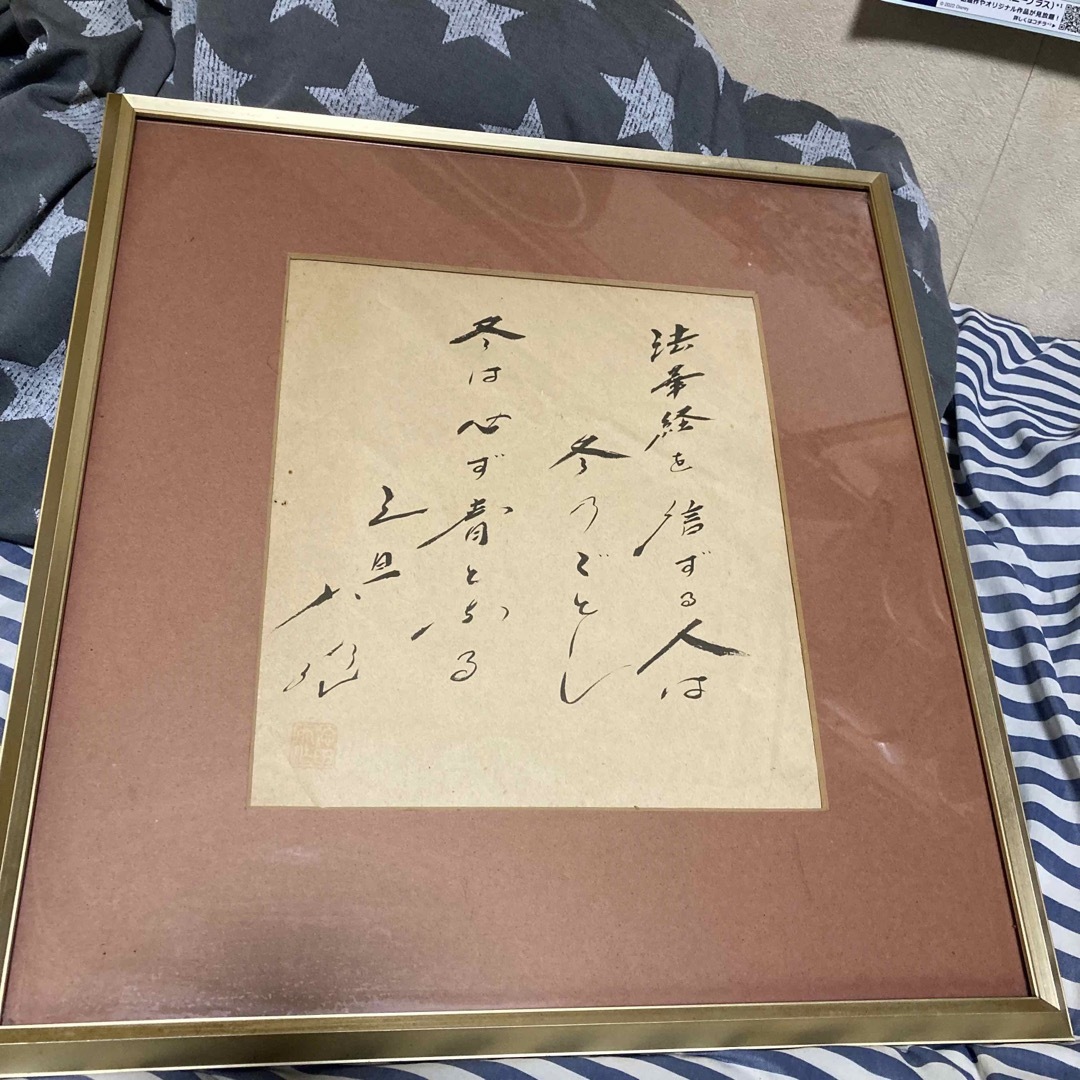 法華経を信ずる人は
冬のごとし
冬は必ず春となる
プラス)
© 2022 Disney
作やオリジナル作品が見放題!
詳しくはコチラ